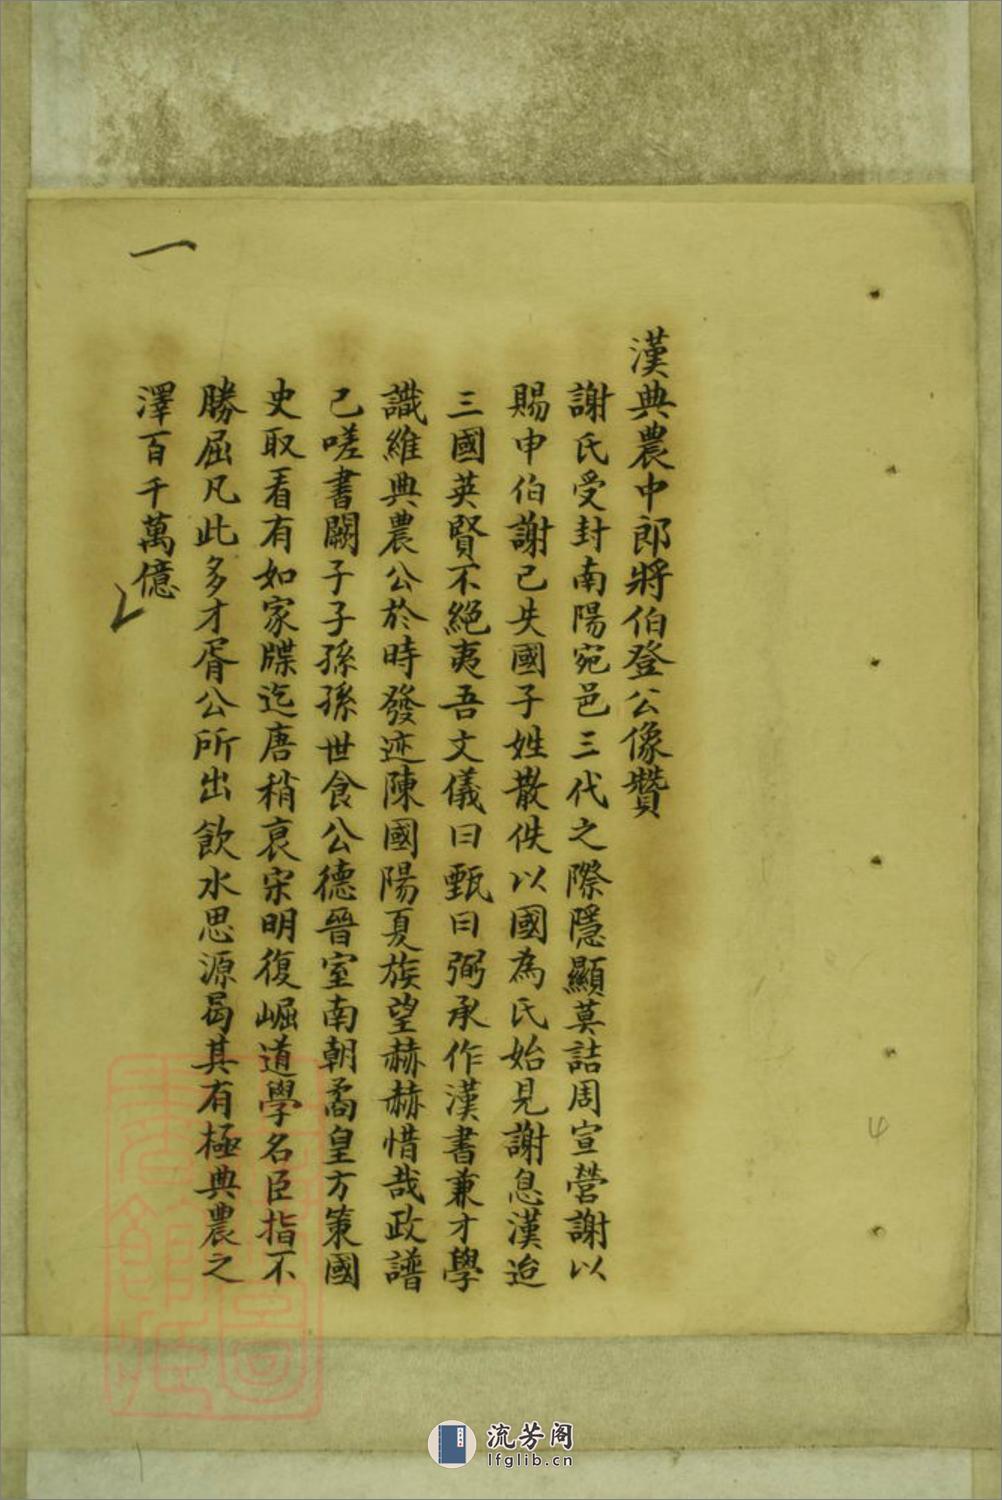 漢典農中郎將伯登公像贊
謝氏受封南陽宛邑三代之際隱顯莫詰周宣營謝以
賜申伯謝已失國子姓散佚以國為氏始見謝息漢迨
三國英賢不絕夷吾文儀曰甄曰弼承作漢書兼才學
識維典農公於時發迹陳國陽夏族望赫赫惜哉政譜
已嗟書闕子子孫孫世食公德晉室南朝矞皇方策國
史取看有如家牒迄唐稍衰宋明復崛道學名臣指不
勝屈凡此多才胥公所出飲水思源曷其有極典農之
澤百千萬億
一
流芳阁
lfglib.cn